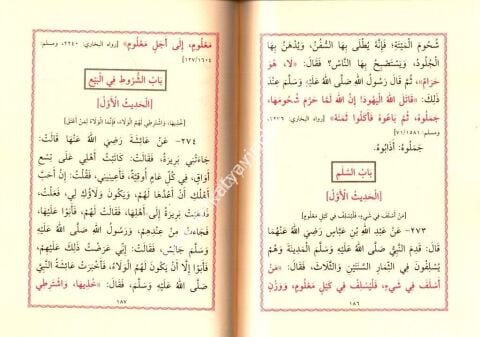 شُحُومَ المَيْتَةِ؛ فَإِنَّهُ يُطْلَى بِهَا السُّفُنُ، وَيُدْهَنُ بِهَا
الجُلُودُ، وَيَسْتَصْبِحُ بِهَا النَّاسُ؟ فَقَالَ: «لَا، هُوَ
حَرَامٌ»، ثُمَّ قَالَ رَسُولُ اللهِ صَلَّى اللهُ عَلَيْهِ وَسَلَّمَ عِنْدَ
ذَلِكَ: «قَاتَلَ اللهُ اليَهُودَ! إِنَّ اللهَ لَمَّا حَرَّمَ شُحُومَهَا،
جَمَلُوهُ، ثُمَّ بَاعُوهُ فَأَكَلُوا ثَمَنَهُ» [رواه البخاري: ٢٢٣٦،
ومسلم: ٧١/١٥٨١]
جَمَلُوهُ: أَذَابُوهُ.
بَابُ السَّلَمِ
[الحَدِيثُ الأَوَّلُ]
[مَنْ أَسْلَفَ فِي شَيْءٍ، فَلْيُسْلِفْ فِي كَيْلٍ مَعْلُومٍ]
٢٧٣- عَنْ عَبْدِ اللهِ بْنِ عَبَّاسٍ رَضِيَ اللهُ عَنْهُمَا
قَالَ: قَدِمَ النَّبِيُّ صَلَّى اللهُ عَلَيْهِ وَسَلَّمَ المَدِينَةَ وَهُمْ
يُسْلِفُونَ فِي الثِّمَارِ السَّنَتَيْنِ وَالثَّلَاثَ، فَقَالَ: «مَنْ
أَسْلَفَ فِي شَيْءٍ، فَلْيُسْلِفْ فِي كَيْلٍ مَعْلُومٍ، وَوَزْنٍ
١٨٦
مَعْلُومٍ، إِلَى أَجَلٍ مَعْلُومٍ» [رواه البخاري: ٢٢٤٠، ومسلم:
١٢٧/١٦٠٤]
بَابُ الشُّرُوطِ فِي البَيْعِ
[الحَدِيثُ الأَوَّلُ]
[خُذِيهَا، وَاشْتَرِطِي لَهُمُ الوَلَاءَ، فَإِنَّمَا الوَلَاءُ لِمَنْ أَعْتَقَ]
٢٧٤- عَنْ عَائِشَةَ رَضِيَ اللهُ عَنْهَا قَالَتْ:
جَاءَتْنِي بَرِيرَةُ، فَقَالَتْ: كَاتَبْتُ أَهْلِي عَلَى تِسْعِ
أَوَاقٍ، فِي كُلِّ عَامٍ أُوقِيَّةٌ، فَأَعِينِينِي، فَقُلْتُ: إِنْ أَحَبَّ
أَهْلُكِ أَنْ أَعُدَّهَا لَهُمْ، وَيَكُونَ وَلَاؤُكِ لِي، فَعَلْتُ،
فَذَهَبَتْ بَرِيرَةُ إِلَى أَهْلِهَا، فَقَالَتْ لَهُمْ، فَأَبَوْا عَلَيْهَا،
فَجَاءَتْ مِنْ عِنْدِهِمْ، وَرَسُولُ اللهِ صَلَّى اللهُ عَلَيْهِ
وَسَلَّمَ جَالِسٌ، فَقَالَتْ: إِنِّي عَرَضْتُ ذَلِكَ عَلَيْهِمْ،
فَأَبَوْا إِلَّا أَنْ يَكُونَ لَهُمُ الوَلَاءُ، فَأَخْبَرَتْ عَائِشَةُ النَّبِيَّ
صَلَّى اللهُ عَلَيْهِ وَسَلَّمَ، فَقَالَ: «خُذِيهَا، وَاشْتَرِطِي
١٨٧